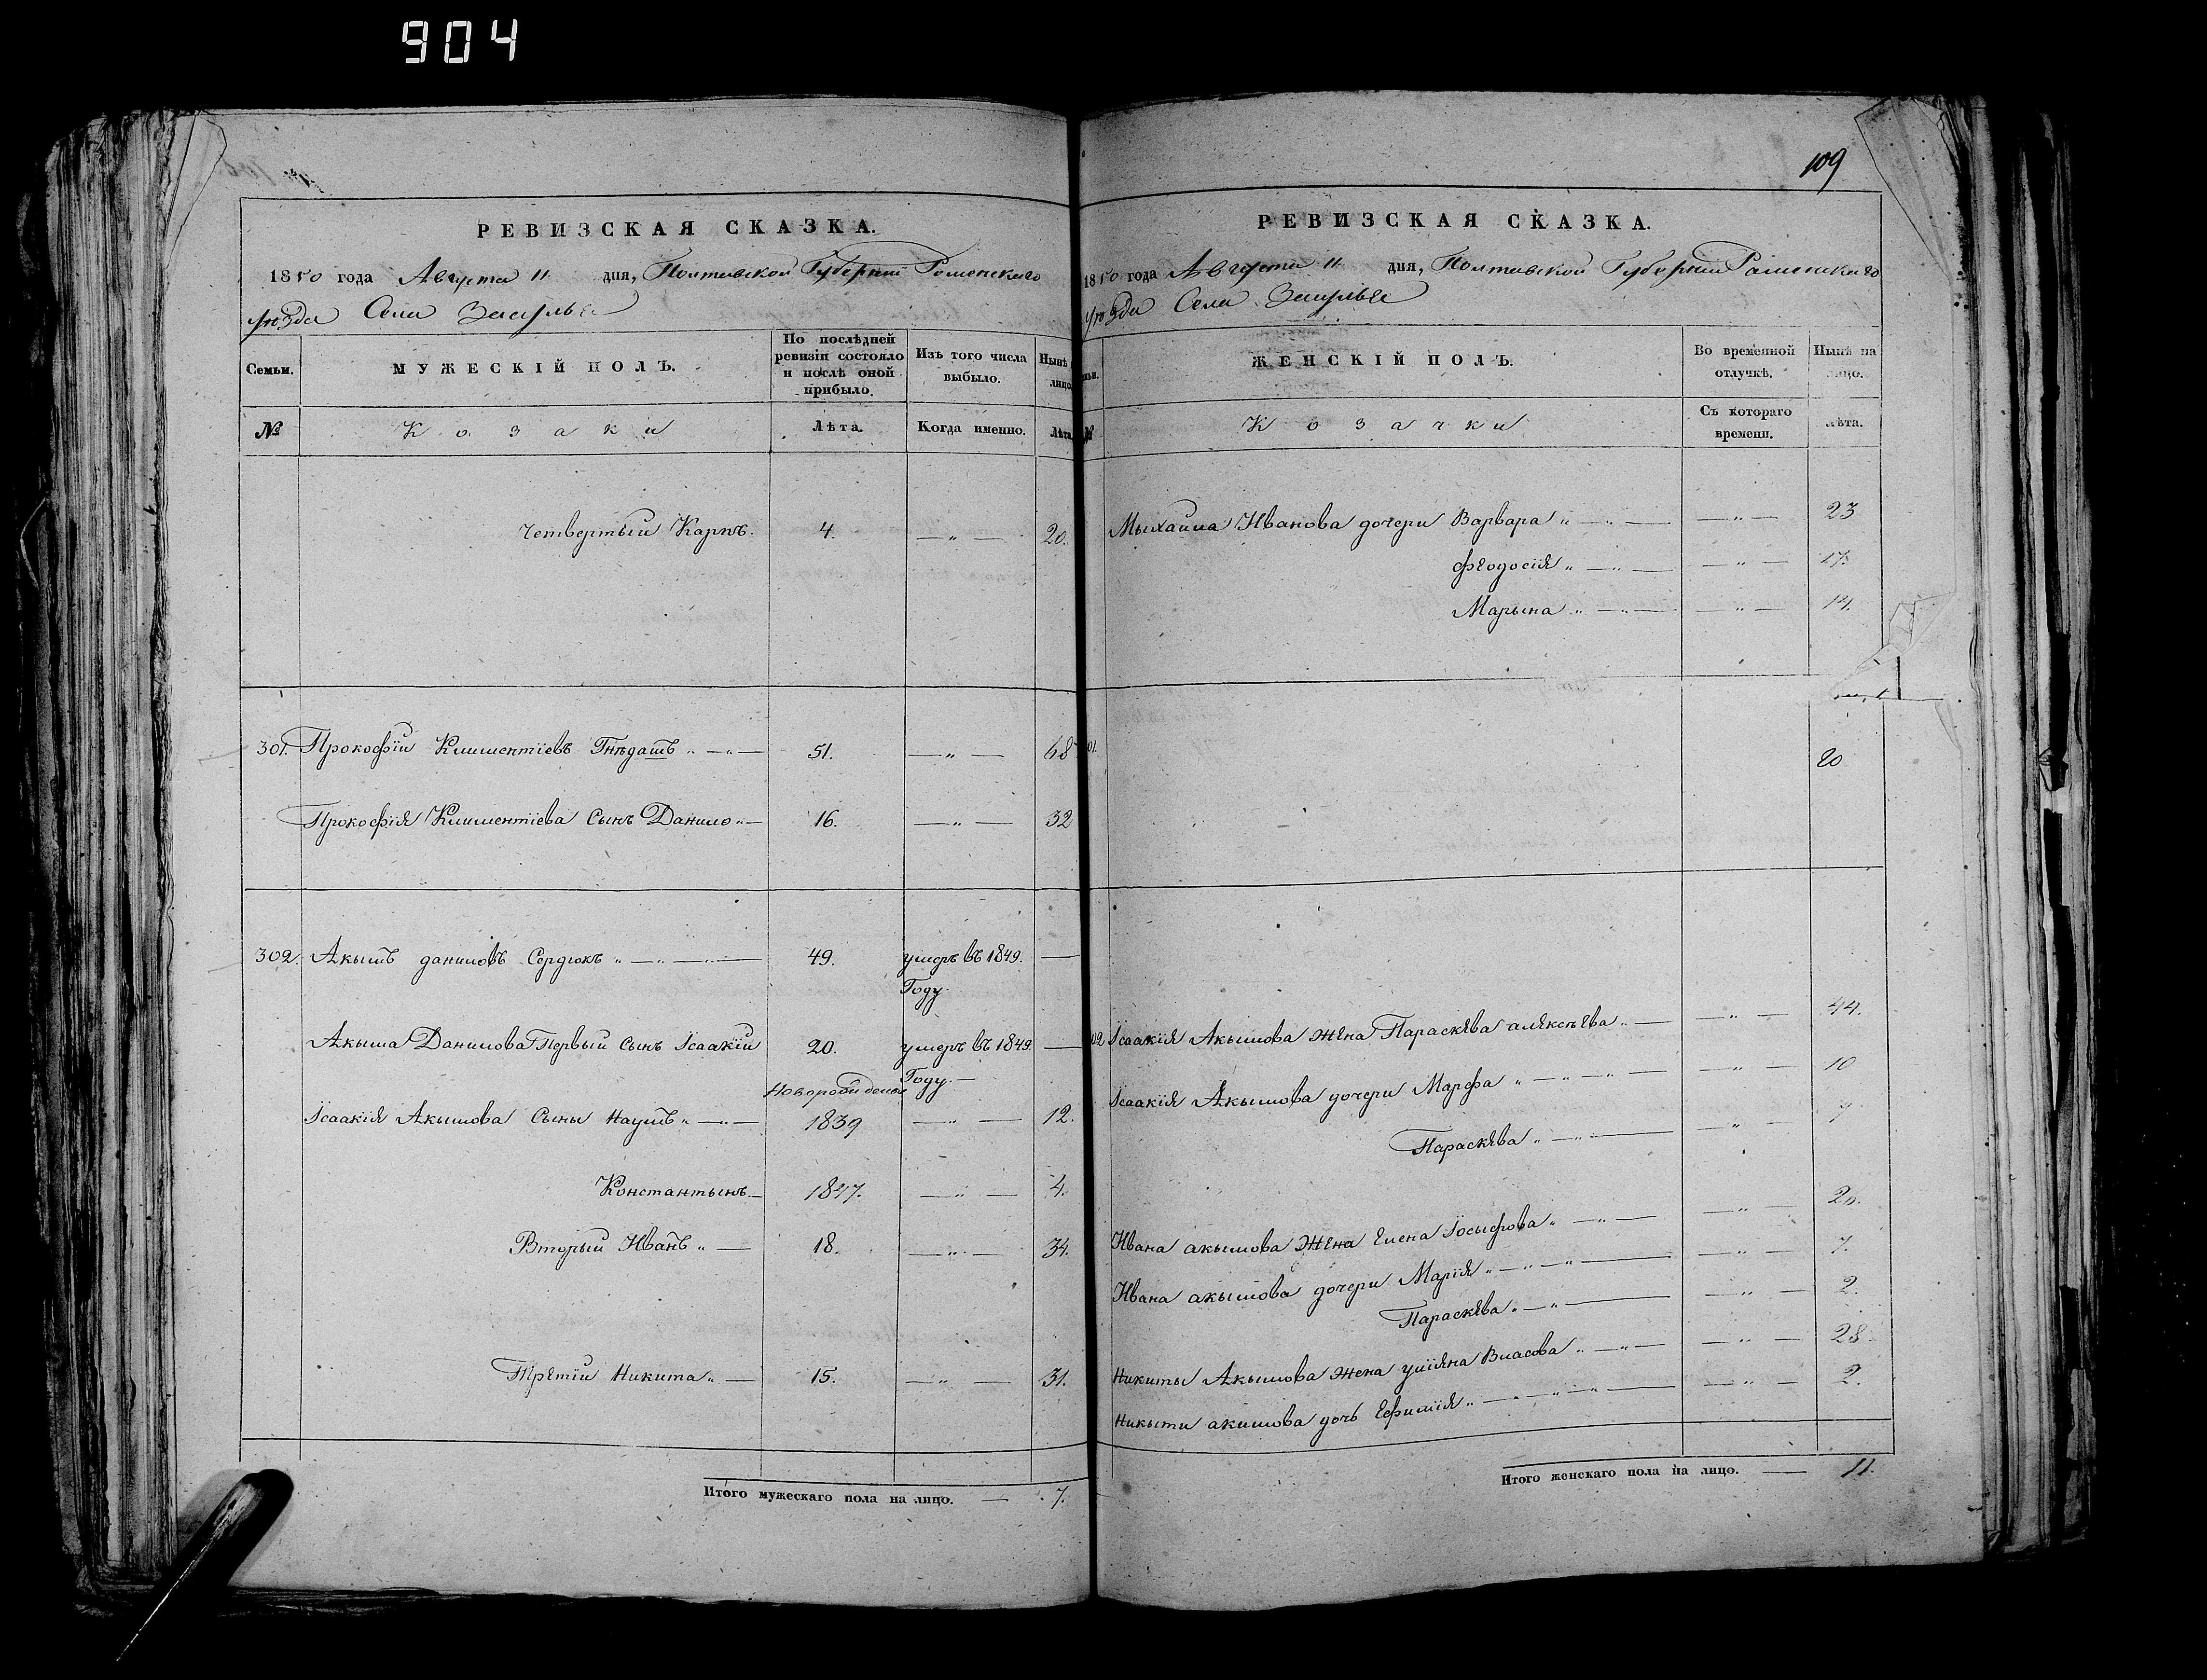 904
109
РЕВИЗСКАЯ СКАЗКА.
1850 года Августа 11 дня, Полтавской Губерніи Роменского
уѣзда Села Засулье
Семьи.
МУЖЕСКІЙ ПОЛЪ.
По послѣдней ревизіи состояло и послѣ оной прибыло.
Изъ того числа выбыло.
Нынѣ
лицо.
№
Козаки
Лѣта.
Когда именно.
Лѣта.
Четвертый Карпъ. 4. —„— 20.
301. Прокофій Климентіевъ Гнѣдашъ „ —„— 51. —„— 48
Прокофія Климентіева Сынъ Данило „— 16. —„— 32
302. Акымъ даниловъ Сердюкъ „ —„— 49. умеръ въ 1849. —
Году.
Акыма Данилова Первый Сынъ Ісаакій 20. умеръ въ 1849. —
Году.—
Новорожденые
Ісаакія Акымова Сыны Наумъ „ —„— 1839 —„— 12.
Константынъ.— 1847. —„— 4.
Вторый Иванъ „ — 18. —„— 34.
Третій Никита „ — 15. —„— 31.
Итого мужескаго пола на лицо. — 7.
РЕВИЗСКАЯ СКАЗКА.
1850 года Августа 11 дня, Полтавской Губерніи Роменского
уѣзда Села Засулье
ЖЕНСКІЙ ПОЛЪ.
Во временной отлучкѣ.
Нынѣ на лицо.
№
Козачки
Съ котораго времени.
Лѣта.
Мыхайла Иванова дочери Варвара „ —„— —„— 23
Феодосія „ —„— —„— 17.
Марына „ —„— —„— 14.
01.
20
02 Ісаакія Акымова жена Параскева алексѣева „ — —„— 44.
Ісаакія Акымова дочери Марфа „ —„—„— —„— 10
Параскева „ —„— —„— 7
Ивана акымова жена Елена Іосыфова „ —„— —„—
Ивана акымова дочери Марія „ —„—„— —„— 7.
Параскева „ —„— —„— 2.
Никиты Акымова жена уліяна Власова „ —„— —„— 28
Никыти акимова дочь Ефимія „ —„—„— —„— 2.
Итого женскаго пола на лицо. — 11.